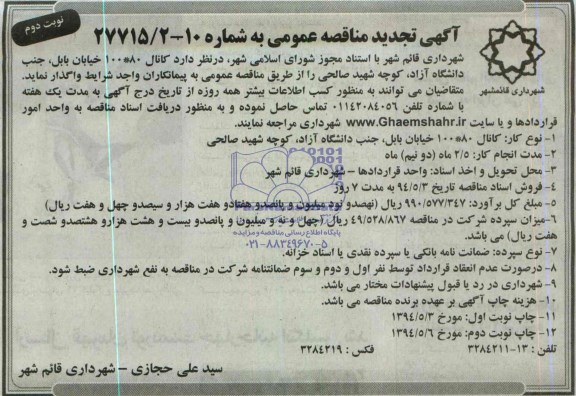 نوبت دوم
آگهی تجدید مناقصه عمومی به شماره ۱۰-۲۷۷۱۵/۲
شهرداری قائمشهر
شهرداری قائم شهر با استناد مجوز شورای اسلامی شهر، درنظر دارد کانال ۸۰*۱۰۰ خیابان بابل، جنب
دانشگاه آزاد، کوچه شهید صالحی را از طریق مناقصه عمومی به پیمانکاران واجد شرایط واگذار نماید.
متقاضیان می توانند به منظور کسب اطلاعات بیشتر همه روزه از تاریخ درج آگهی به مدت یک هفته
با شماره تلفن ۰۱۱۴۲۰۸۴۰۵۶ تماس حاصل نموده و به منظور دریافت اسناد مناقصه به واحد امور
قراردادها و یا سایت www.Ghaemshahr.ir شهرداری مراجعه نمایند.
۱- نوع کار: کانال ۸۰*۱۰۰ خیابان بابل، جنب دانشگاه آزاد، کوچه شهید صالحی
۲- مدت انجام کار: ۲/۵ ماه (دو نیم) ماه
۳- محل تحویل و اخذ اسناد: واحد قراردادها - شهرداری قائم شهر
۴- فروش اسناد مناقصه تاریخ ۹۴/۵/۳ به مدت ۷ روز
۵- مبلغ کل برآورد: ۹۹۰/۵۷۷/۳۴۷ ریال (نهصدو نود میلیون و پانصدو هفتادو هفت هزار و سیصدو چهل و هفت ریال)
۶-میزان سپرده شرکت در مناقصه ۴۹/۵۲۸/۸۶۷ ریال (چهل و نه و میلیون و پانصدو بیست و هشت هزارو هشتصدو شصت و
هفت ریال) می باشد.
۷- نوع سپرده: ضمانت نامه بانکی یا سپرده نقدی یا اسناد خزانه.
۸- درصورت عدم انعقاد قرارداد توسط نفر اول و دوم و سوم ضمانتنامه شرکت در مناقصه به نفع شهرداری ضبط شود.
۹- شهرداری در رد یا قبول پیشنهادات مختار می باشد.
۱۰- هزینه چاپ آگهی بر عهده برنده مناقصه می باشد.
۱۱- چاپ نوبت اول: مورخ ۱۳۹۴/۵/۳
۱۲- چاپ نوبت دوم: مورخ ۱۳۹۴/۵/۶
تلفن : ۱۳-۳۲۸۴۲۱۱ فکس : ۳۲۸۴۲۱۹
سید علی حجازی - شهرداری قائم شهر
پایگاه اطلاع رسانی مناقصه و مزایده
۰۲۱-۸۸۳۴۹۶۷۰-۵